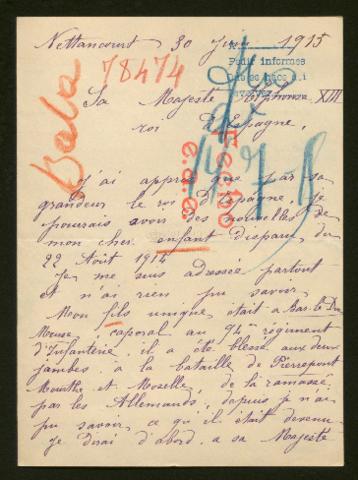 Nettancourt 30 Juin 1915
78474
Pedir informes
Sa Majesté Alphonse XIII
roi d'Espagne,
Bala
J'ai appris que par sa
grandeur le roi d'Espagne, je
pourrais avoir des nouvelles de
mon cher enfant disparu du
22 Août 1914
Je me suis adressée partout
et n'ai rien pu savoir
Mon fils unique était a Bar-le-Duc
Meuse caporal au 94e régiment
d'Infanterie, il a été blessé aux deux
jambes a la bataille de Pierrepont
Meurthe et Moselle, de la ramassé
par les Allemands, depuis je n'ai
pu savoir ce qu'il était devenu
Je dirai d'abord a sa Majesté